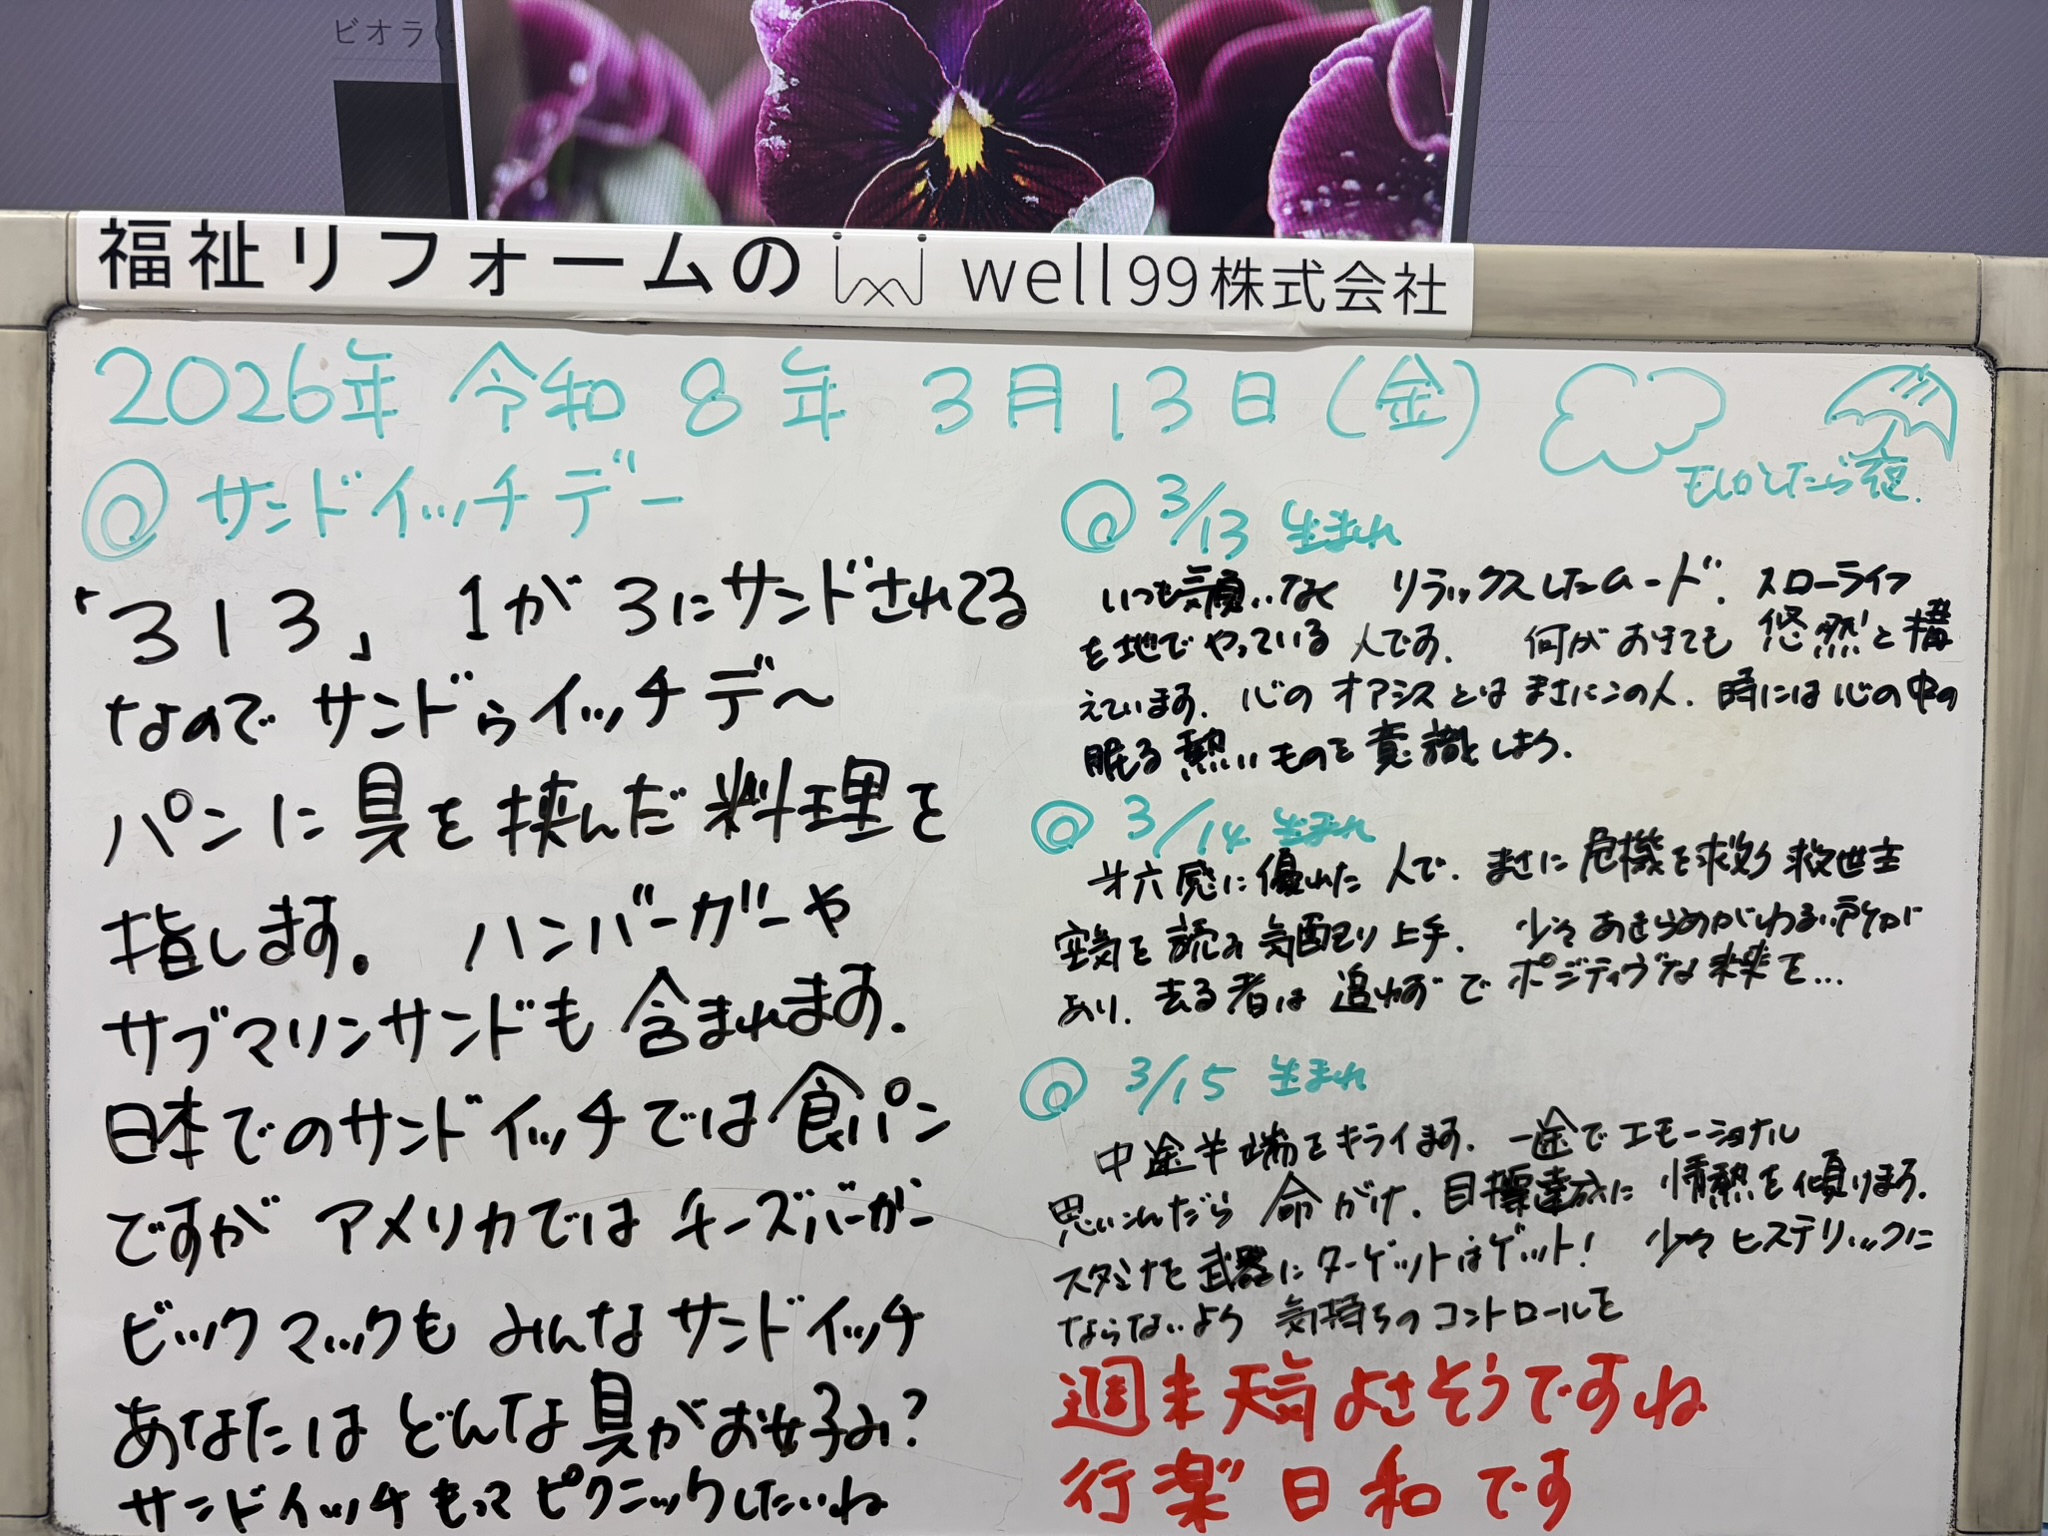 ビオラ(
福祉リフォームの well99株式会社
2026年 令和 8年 3月13日(金)
もしかしたら夜.
@サンドイッチデー
「313」 1が3にサンドされてる
なのでサンドゥイッチデ〜
パンに具を挟んだ料理を
指します。 ハンバーガーや
サブマリンサンドも含まれます.
日本でのサンドイッチでは食パン
ですが アメリカではチーズバーガー
ビックマックも みんなサンドイッチ
あなたは どんな具がお好み?
サンドイッチもって ピクニックしたいね
@ 3/13 生まれ
いつも気負いなく リラックスしたムード. スローライフ
を地でやっている 人です. 何がおきても 悠然と構
えています. 心の オアシスとは まさにこの人. 時には心の中の
眠る熱いものを意識しよう.
@ 3/14 生まれ
才六感に優れた 人で. まさに危機を救う救世主
空気を読み気配り上手. 少々あきらめがわるい所が
あり. 去る者は 追わず で ポジティヴな未来を...
@ 3/15 生まれ
中途半端をキライます. 一途でエモーショナル
思いこんだら 命がけ. 目標達成に 情熱を傾けます.
スタミナを武器にターゲットはゲット! 少々 ヒステリックに
ならないよう 気持ちのコントロールを
週末天気よさそうですね
行楽日和です